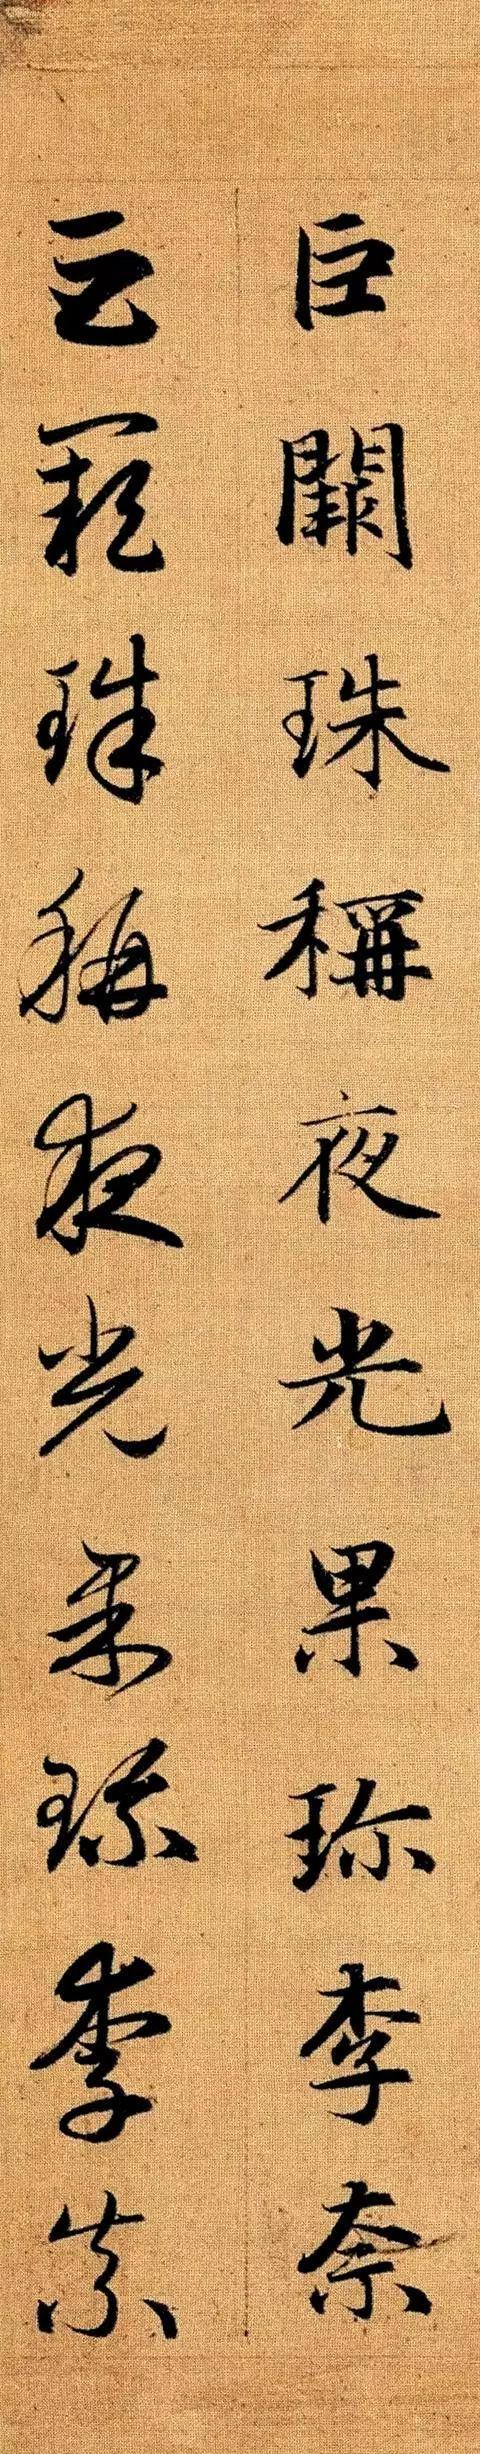 巨闕珠稱夜光果珎李柰
巨闕珠稱夜光果珎李柰